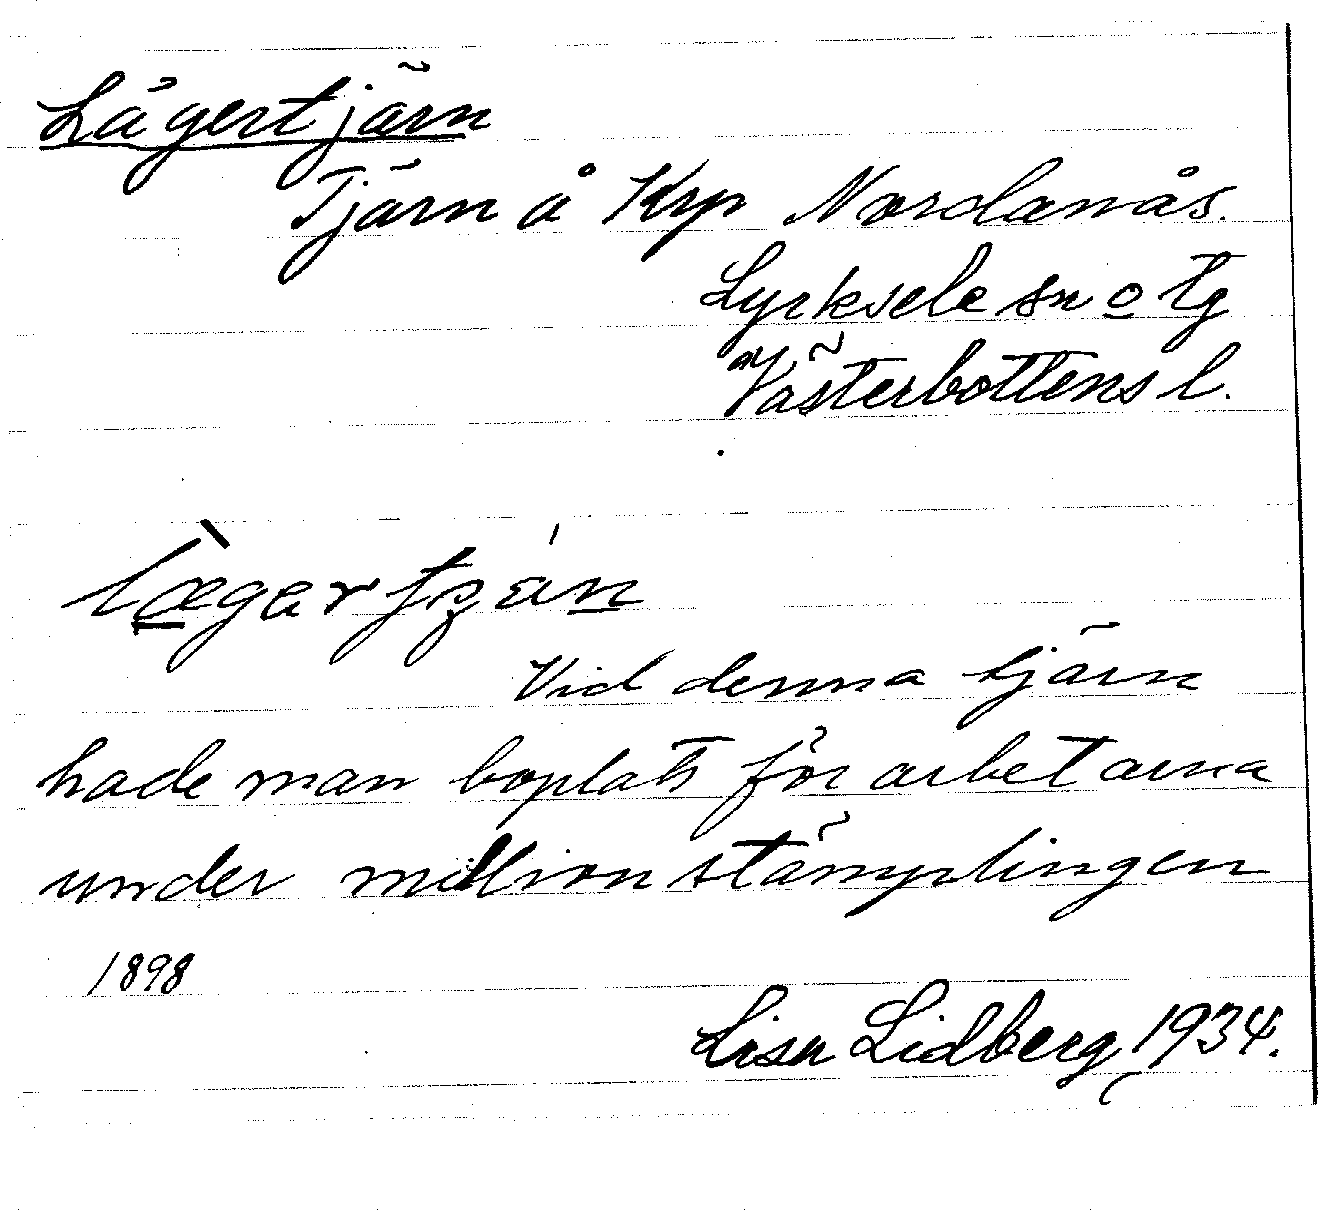 Lägertjärn
Tjärn å Krp Nordanås.
Lycksele sn o tg
Västerbottens l.
lægartʒän
Vid denna tjärn
hade man boplats för arbetarna
under millionstämplingen
1898
Lisa Lidberg, 1934.